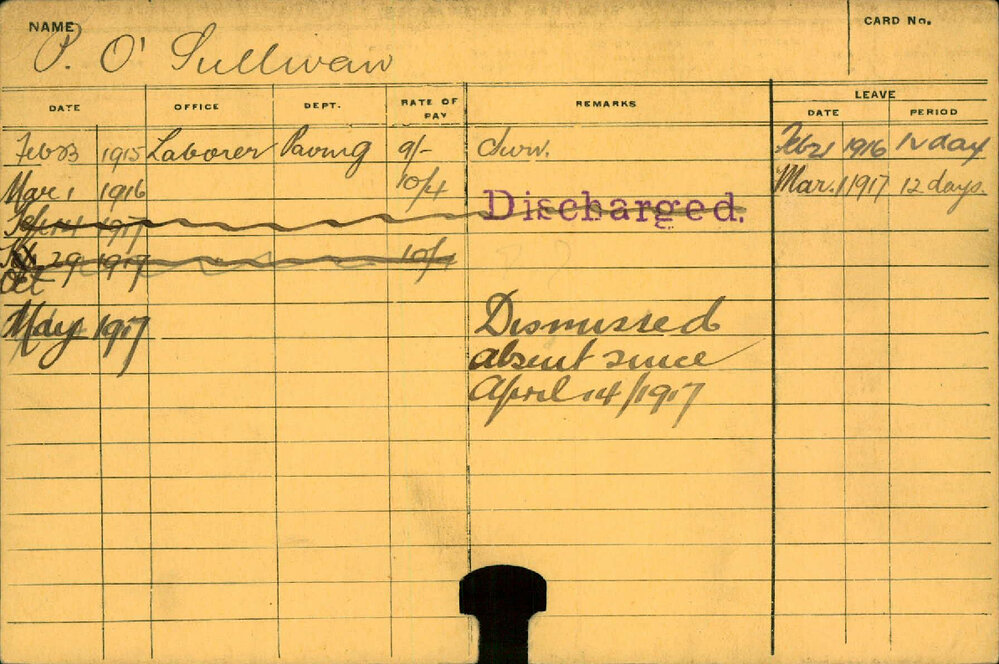 NAME P. O' Sullivan CARD No.
LEAVE
DATE OFFICE DEPT. RATE OF PAY REMARKS DATE PERIOD
Feb 23 1915 Laborer Paving 9/- Feb 21 1916 12 day
Mar 1 1916 10/4 Mar. 1 1917 12 days.
14 1917 Discharged.
Oct 29 1917 10/4
May 1917 Dismissed
absent since
April 14/1917